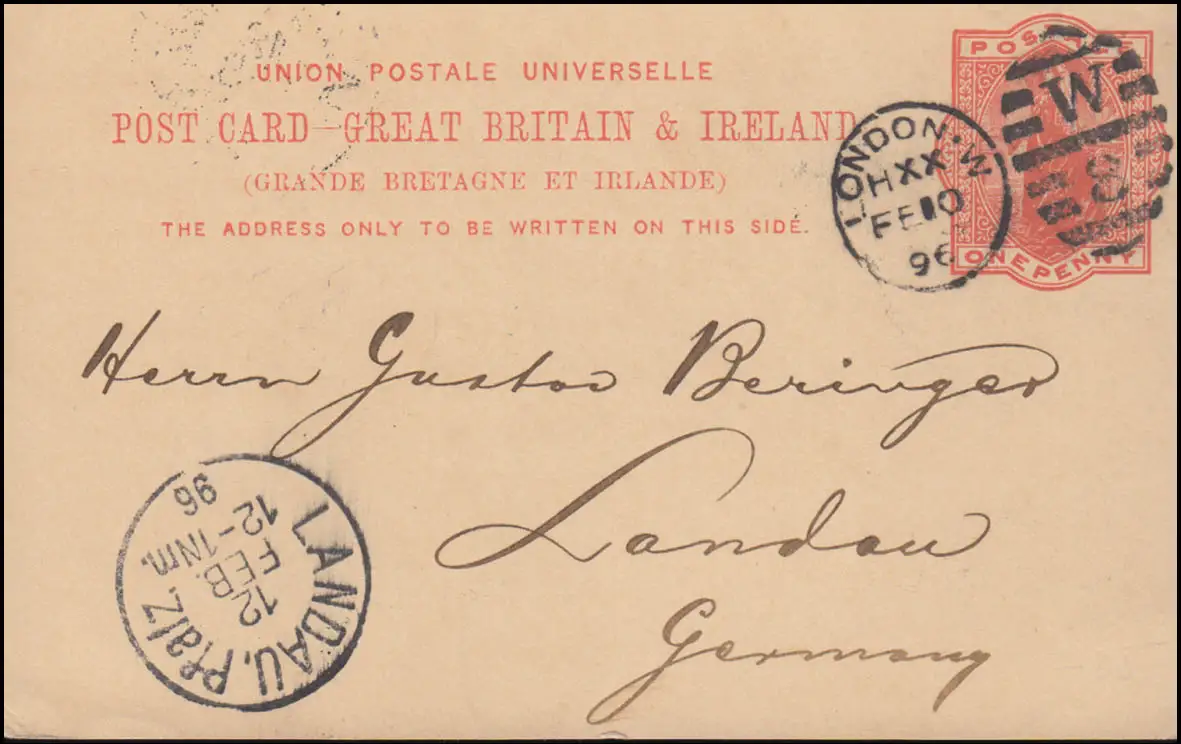 UNION POSTALE UNIVERSELLE
POST CARD—GREAT BRITAIN & IRELAND
(GRANDE BRETAGNE ET IRLANDE)
THE ADDRESS ONLY TO BE WRITTEN ON THIS SIDE.
POSTAGE
ONE PENNY
LONDON·W
HXX
FE 10
96
W
Herrn Gustav Beringer
Landau
Germany
LANDAU, Pfalz.
12
FEB.
12-1Nm.
96